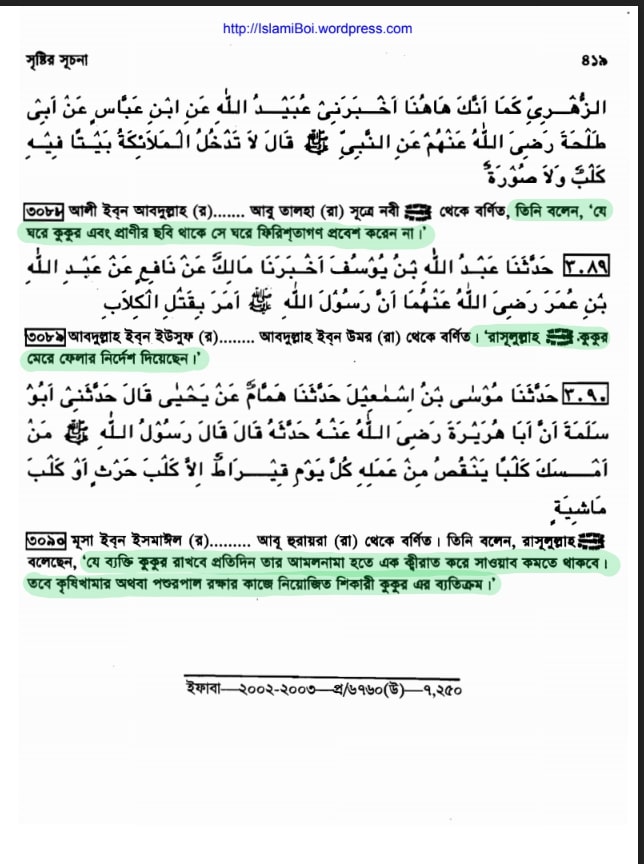 http://IslamiBoi.wordpress.com
সৃষ্টির সূচনা ৪১৯
الزُّهْرِىِّ كَمَا اَنَّكَ هَاهُنَا اَخْبَرَنِىْ عُبَيْدُ اللّٰهِ عَنِ ابْنِ عَبَّاسٍ عَنْ اَبِىْ
طَلْحَةَ رَضِىَ اللّٰهُ عَنْهُمْ عَنِ النَّبِىِّ ﷺ قَالَ لاَ تَدْخُلُ الْمَلاَئِكَةُ بَيْتًا فِيْهِ
كَلْبٌ وَلاَ صُوْرَةٌ
৩০৮৮ আলী ইব্‌ন আবদুল্লাহ (র)....... আবূ তালহা (রা) সূত্রে নবী ﷺ থেকে বর্ণিত, তিনি বলেন, ‘যে
ঘরে কুকুর এবং প্রাণীর ছবি থাকে সে ঘরে ফিরিশ্‌তাগণ প্রবেশ করেন না।’
٣٠٨٩ حَدَّثَنَا عَبْدُ اللّٰهِ بْنُ يُوْسُفَ اَخْبَرَنَا مَالِكٌ عَنْ نَافِعٍ عَنْ عَبْدِ اللّٰهِ
بْنِ عُمَرَ رَضِىَ اللّٰهُ عَنْهُمَا اَنَّ رَسُوْلَ اللّٰهِ ﷺ اَمَرَ بِقَتْلِ الْكِلاَبِ
৩০৮৯ আবদুল্লাহ ইব্‌ন ইউসুফ (র)........ আবদুল্লাহ ইব্‌ন উমর (রা) থেকে বর্ণিত। ‘রাসূলুল্লাহ ﷺ কুকুর
মেরে ফেলার নির্দেশ দিয়েছেন।’
٣٠٩٠ حَدَّثَنَا مُوْسٰى بْنُ اِسْمٰعِيْلَ حَدَّثَنَا هَمَّامٌ عَنْ يَحْيٰى قَالَ حَدَّثَنِىْ اَبُوْ
سَلَمَةَ اَنَّ اَبَا هُرَيْرَةَ رَضِىَ اللّٰهُ عَنْهُ حَدَّثَهُ قَالَ قَالَ رَسُوْلُ اللّٰهِ ﷺ مَنْ
اَمْسَكَ كَلْبًا يَنْقُصُ مِنْ عَمَلِهِ كُلَّ يَوْمٍ قِيْرَاطٌ اِلاَّ كَلْبَ حَرْثٍ اَوْ كَلْبَ
مَاشِيَةٍ
৩০৯০ মূসা ইব্‌ন ইসমাঈল (র)......... আবূ হুরায়রা (রা) থেকে বর্ণিত। তিনি বলেন, রাসূলুল্লাহ ﷺ
বলেছেন, ‘যে ব্যক্তি কুকুর রাখবে প্রতিদিন তার আমলনামা হতে এক ক্বীরাত করে সাওয়াব কমতে থাকবে।
তবে কৃষিখামার অথবা পশুরপাল রক্ষার কাজে নিয়োজিত শিকারী কুকুর এর ব্যতিক্রম।’
ইফাবা—২০০২-২০০৩—প্র/৬৭৬০(উ)—৭,২৫০